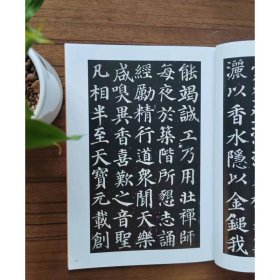 灑以香水隱以金鎚我
能竭誠工乃用壯禪師
每夜於築階所懇志誦
經勵精行道衆聞天樂
咸嗅異香喜歎之音聖
凡相半至天寶元載創